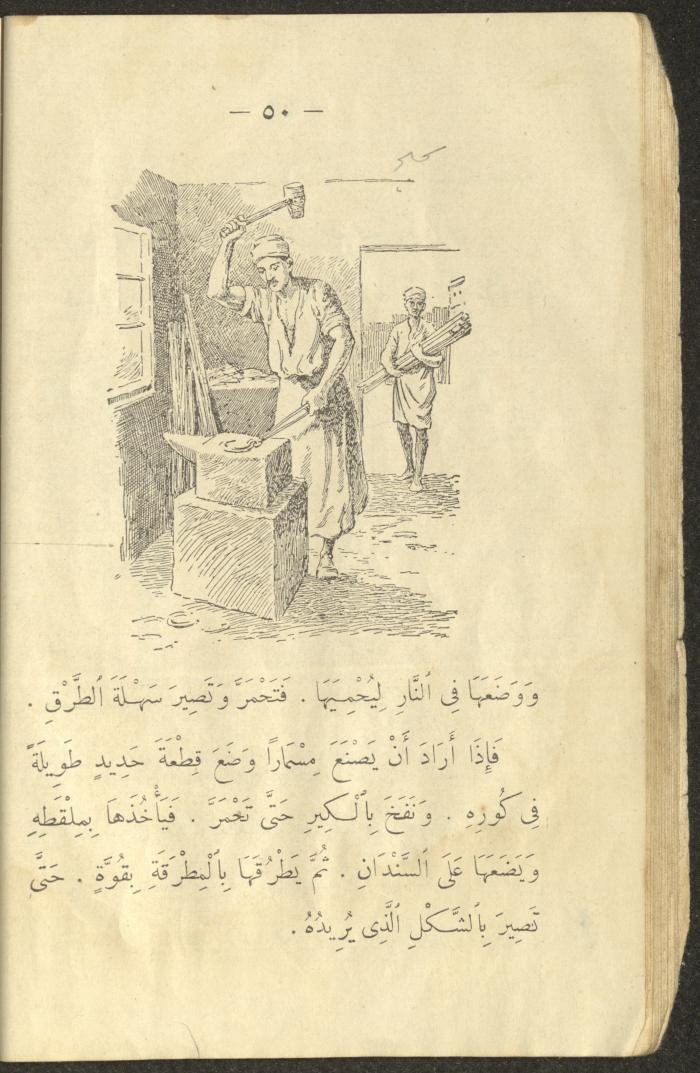 — ٥٠ —
وَوَضَعَهَا فِى ٱلنَّارِ لِيُحْمِيَهَا . فَتَحْمَرَّ وَتَصِيرَ سَهْلَةَ ٱلطَّرْقِ .
فَإِذَا أَرَادَ أَنْ يَصْنَعَ مِسْمَارًا وَضَعَ قِطْعَةَ حَدِيدٍ طَوِيلَةً
فِى كُورِهِ . وَنَفَخَ بِٱلْكِيرِ حَتَّى تَحْمَرَّ . فَيَأْخُذَهَا بِمِلْقَطِهِ
وَيَضَعَهَا عَلَى ٱلسَّنْدَانِ . ثُمَّ يَطْرُقَهَا بِٱلْمِطْرَقَةِ بِقُوَّةٍ . حَتَّى
تَصِيرَ بِٱلشَّكْلِ ٱلَّذِى يُرِيدُهُ .